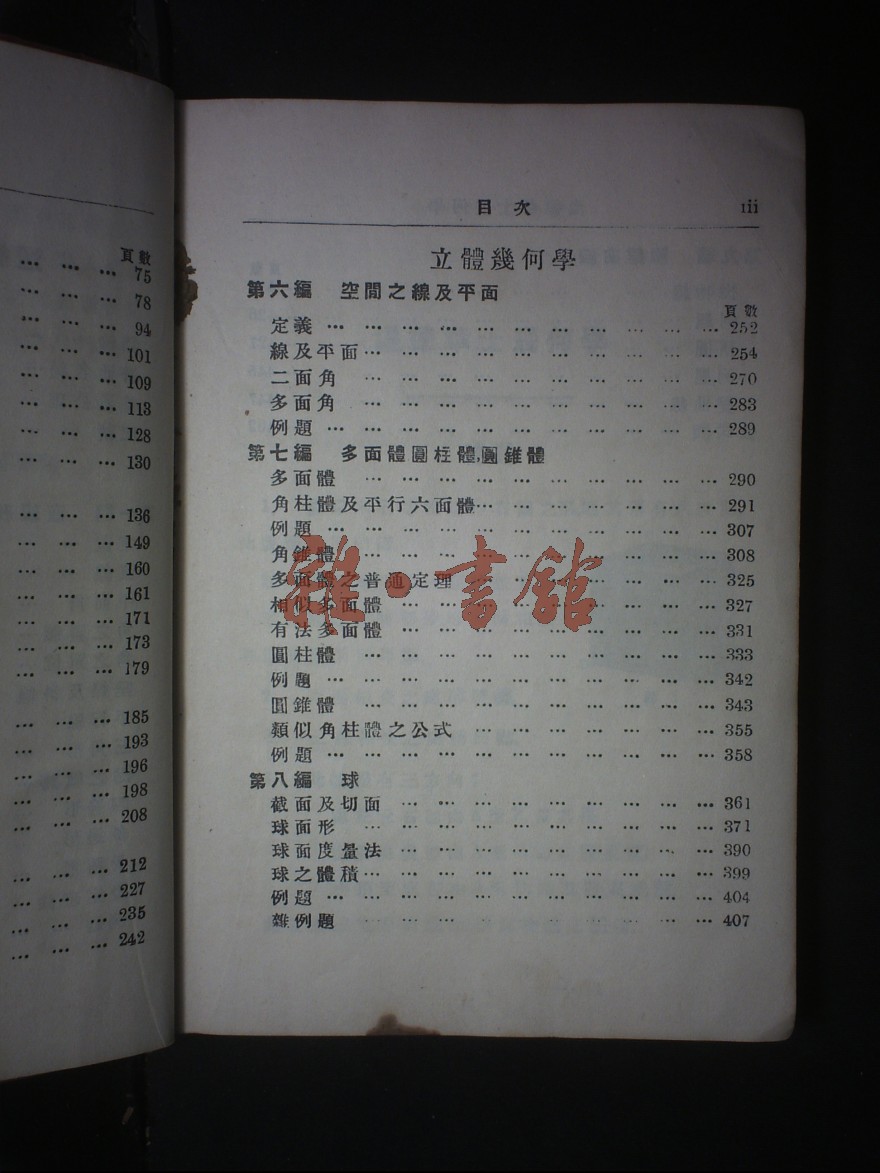 頁數
… … … 75
… … … 78
… … … 94
… … … 101
… … … 109
… … … 113
… … … 128
… … … 130
… … … 136
… … … 149
… … … 160
… … … 161
… … … 171
… … … 173
… … … 179
… … … 185
… … … 193
… … … 196
… … … 198
… … … 208
… … … 212
… … … 227
… … … 235
… … … 242
目次 iii
立體幾何學
第六編 空間之線及平面
頁數
定義 … … … … … … … … … … … 252
線及平面… … … … … … … … … … 254
二面角 … … … … … … … … … … 270
多面角 … … … … … … … … … … 283
例題 … … … … … … … … … … … 289
第七編 多面體,圓柱體,圓錐體
多面體 … … … … … … … … … … 290
角柱體及平行六面體… … … … … … … 291
例題 … … … … … … … … … … … 307
角錐體 … … … … … … … … … … 308
多面體之普通定理 … … … … … … … 325
相似多面體 … … … … … … … … … 327
有法多面體 … … … … … … … … … 331
圓柱體 … … … … … … … … … … 333
例題 … … … … … … … … … … … 342
圓錐體 … … … … … … … … … … 343
類似角柱體之公式 … … … … … … … 355
例題 … … … … … … … … … … … 358
第八編 球
截面及切面 … … … … … … … … … 361
球面形 … … … … … … … … … … 371
球面度量法 … … … … … … … … … 390
球之體積… … … … … … … … … … 399
例題 … … … … … … … … … … … 404
雜例題 … … … … … … … … … … 407
雜·書館